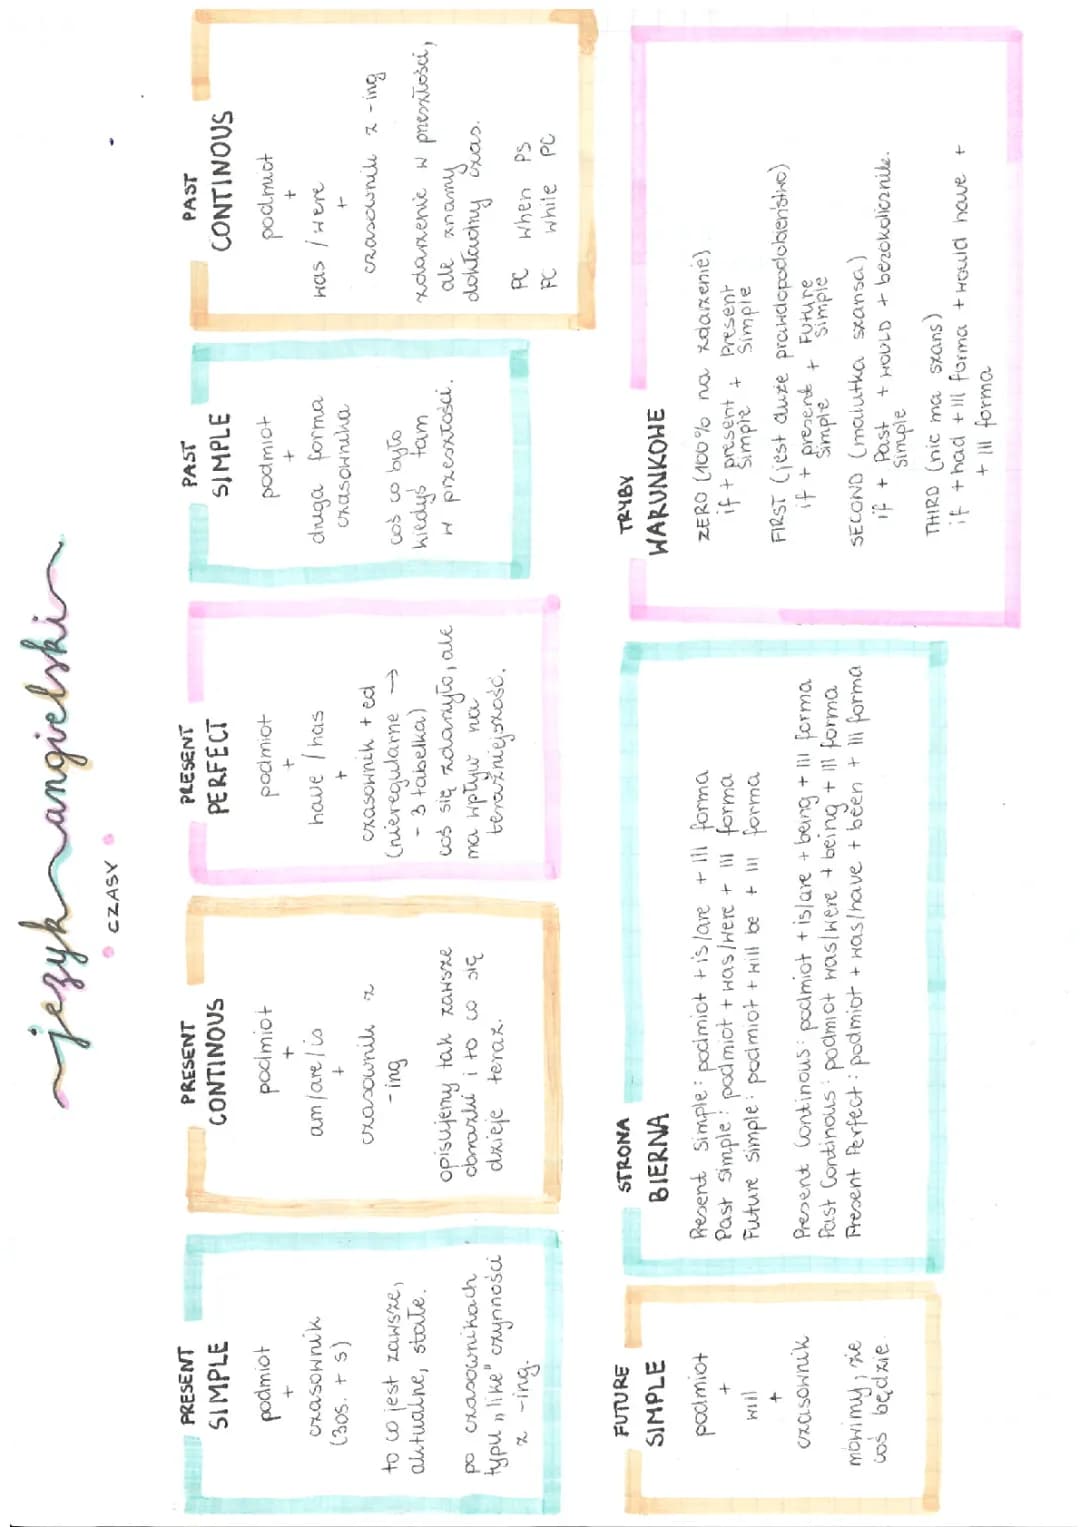 język angielski
• CZASY •
PRESENT
SIMPLE
podmiot
+
czasownik
(3os. + s)
to co jest zawsze,
aktualne, stałe.
po czasownikach
typu „like" czynności
z -ing.
PRESENT
CONTINOUS
podmiot
+
am/are/is
+
czasownik z
-ing
opisujemy tak zawsze
obrazki i to co się
dzieje teraz.
PRESENT
PERFECT
podmiot
+
have / has
+
czasownik + ed
(nieregularne →
- 3 tabelka)
coś się zdarzyło, ale
ma wpływ na
teraźniejszość.
PAST
SIMPLE
podmiot
+
druga forma
czasownika
coś co było
kiedyś tam
w przeszłości.
PAST
CONTINOUS
podmiot
+
was / were
+
czasownik z -ing
zdarzenie w przeszłości,
ale znamy
dokładny czas.
PC when PS
PC while PC
FUTURE
SIMPLE
podmiot
+
will
+
czasownik
mówimy, że
coś będzie.
STRONA
BIERNA
Present simple: podmiot + is/are + III forma
Past simple: podmiot + was/were + III forma
Future simple: podmiot + will be + III forma
Present Continous: podmiot + is/are + being + III forma
Past Continous: podmiot was/were + being + III forma
Present Perfect: podmiot + was/have + been + III forma
TRYBY
WARUNKOWE
ZERO (100% na zdarzenie)
if + present + Present
simple simple
FIRST (jest duże prawdopodobieństwo)
if + present + Future
simple simple
SECOND (malutka szansa)
if + Past + WOULD + bezokolicznik.
simple
THIRD (nic ma szans)
if + had + III forma + would have +
+ III forma